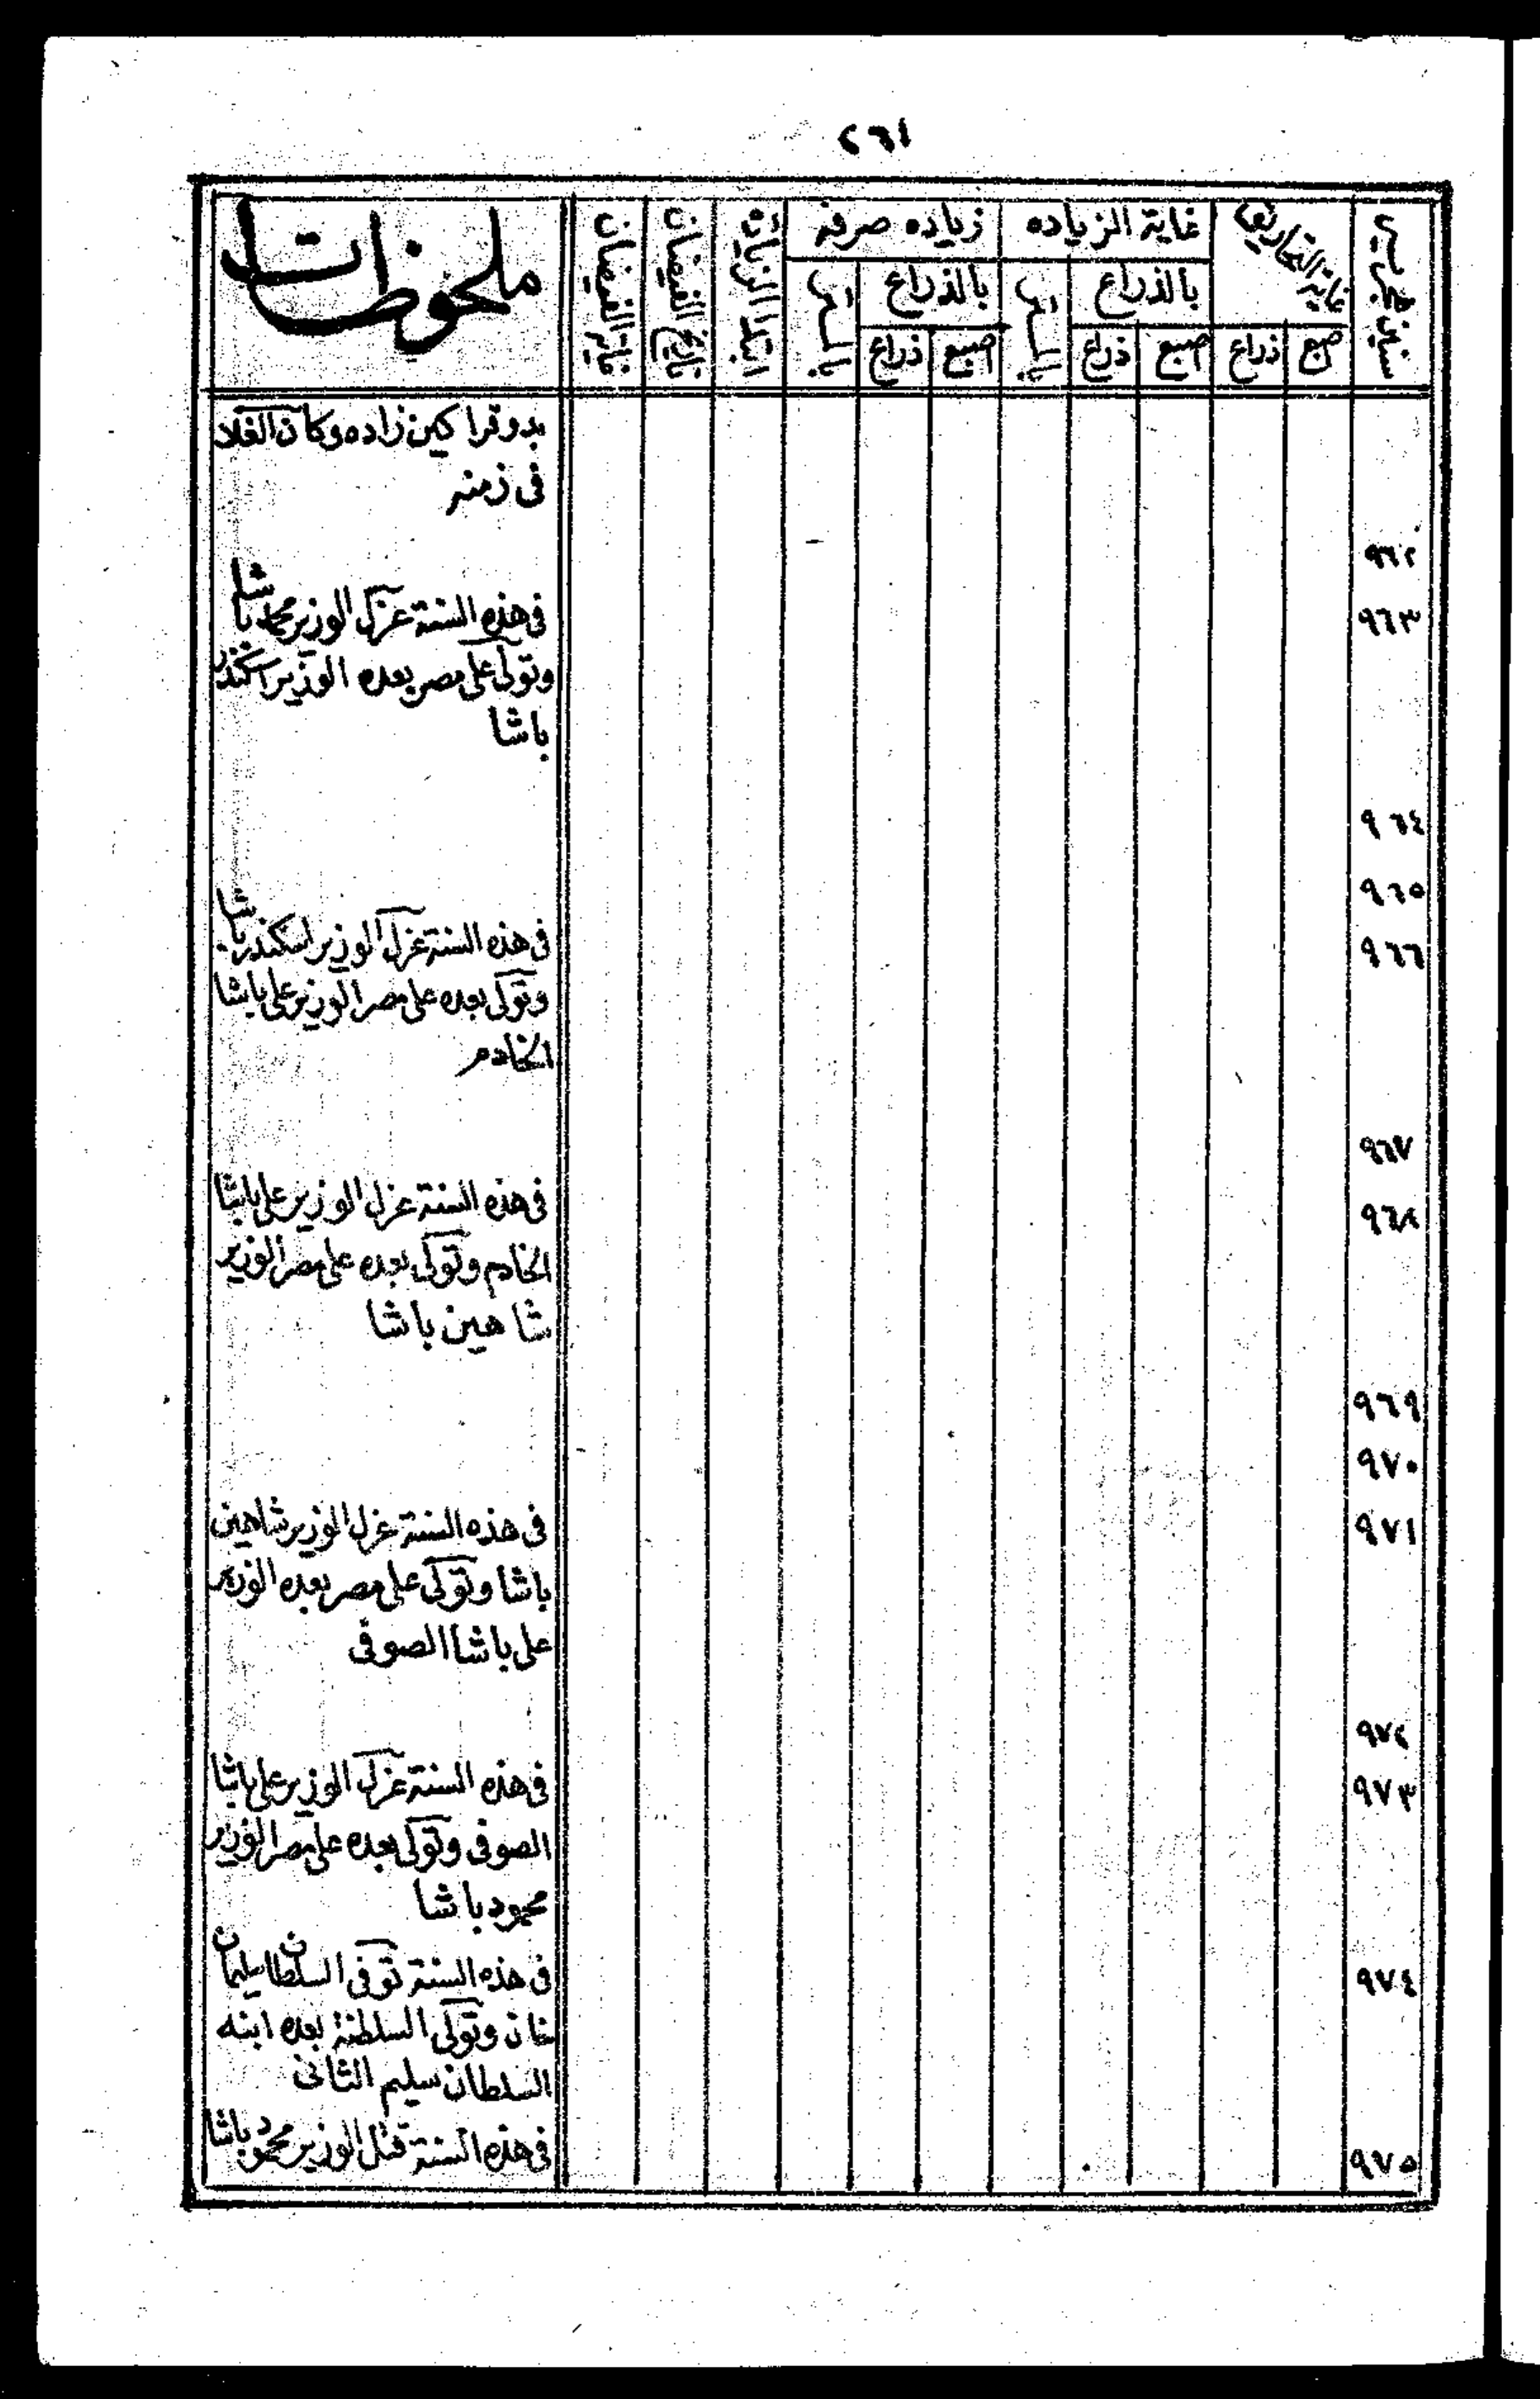 ٢٦١
سنين هجرية
غاية التحاريق
غاية الزياده
زياده صرفه
ابتدا الزيادة
تاريخ الفيضان
غاية الفيضان
ملحوظات
بالذراع
بالمتر
بالذراع
بالمتر
اصبع
ذراع
اصبع
ذراع
اصبع
ذراع
بدوقراكين زاده وكان الغلا
فى زمنه
٩٦٢
٩٦٣
فى هذه السنة عزل الوزير محمد باشا
وتولى على مصر بعده الوزير اسكندر
باشا
٩٦٤
٩٦٥
٩٦٦
فى هذه السنة عزل الوزير اسكندر باشا
وتولى بعده على مصر الوزير على باشا
الخادم
٩٦٧
٩٦٨
فى هذه السنة عزل الوزير على باشا
الخادم وتولى بعده على مصر الوزير
شاهين باشا
٩٦٩
٩٧٠
٩٧١
فى هذه السنة عزل الوزير شاهين
باشا وتولى على مصر بعده الوزير
على باشا الصوفى
٩٧٢
٩٧٣
فى هذه السنة عزل الوزير على باشا
الصوفى وتولى بعده على مصر الوزير
محمود باشا
٩٧٤
فى هذه السنة توفى السلطان سليمان
خان وتولى السلطنة بعده ابنه
السلطان سليم الثانى
٩٧٥
فى هذه السنة قتل الوزير محمود باشا